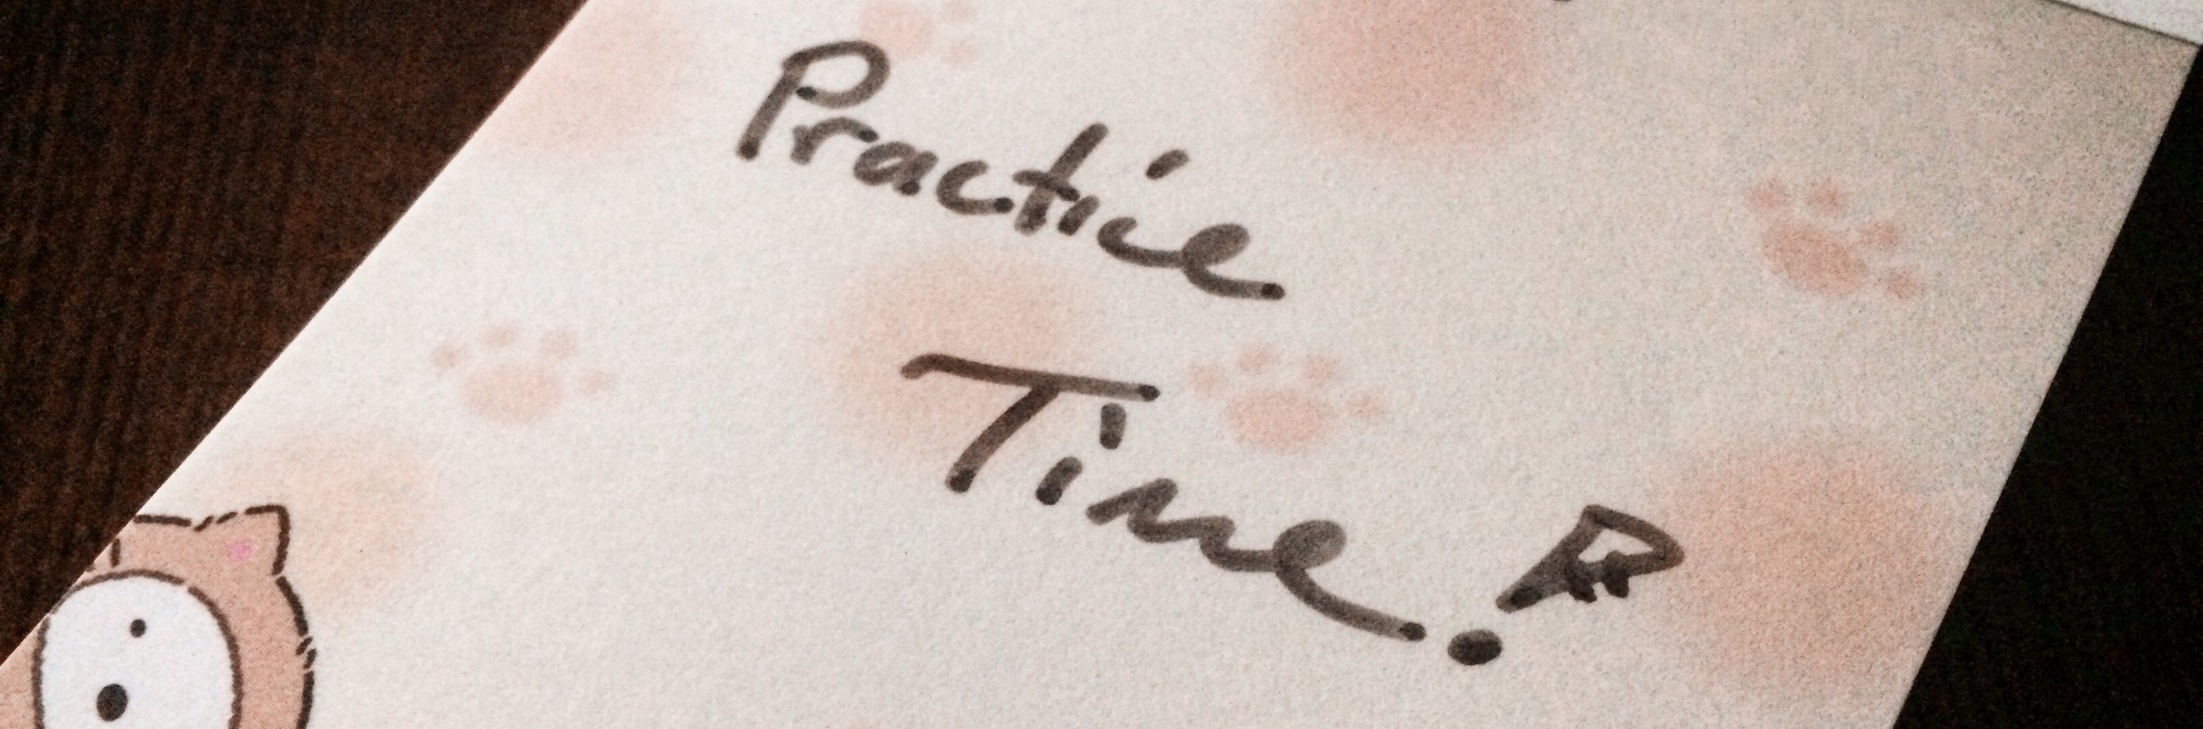 Practice
Time!